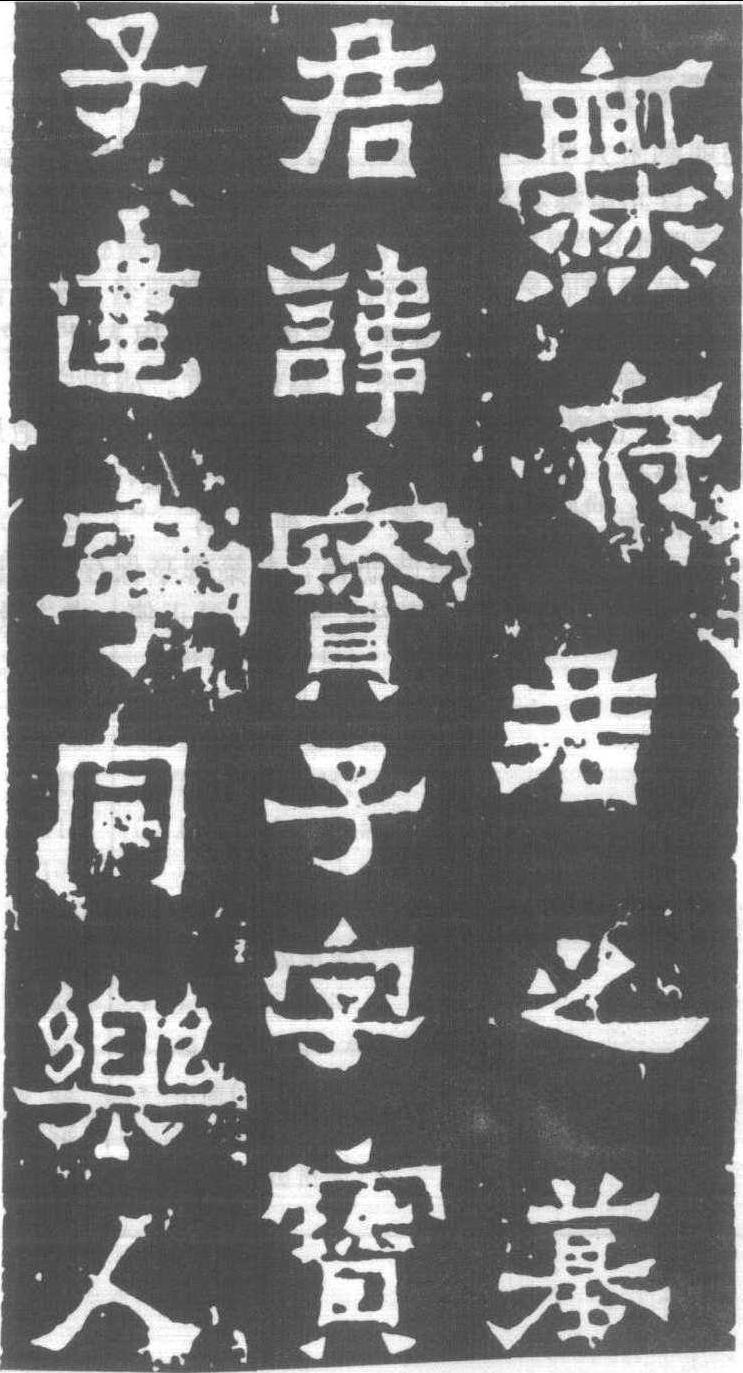 爨府君之墓
君諱寶子字寶
子建寧同樂人